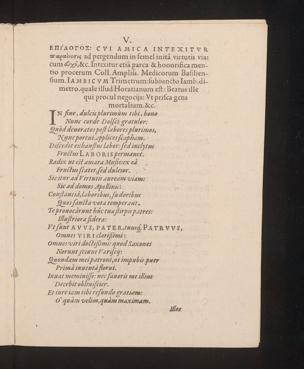 V.
ΕΠΙΛΟΓΟΣ: CVI AMICA INTEXITVR
ad pergendum in semel inita virtutis via:
cum &c. Intexitur etiā parca & honorifica men-
tio procerum Coll. Ampliss. Medicorum Basilien-
sium. IAMBICVM Trimetrum: subiuncto Iamb. di-
metro. quale illud Horatianum est: Beatus ille
qui procul negociis: Vt prisca gens
mortalium. &c.
IN fine, dulcis plurimùm tibi, bono
Nunc corde Dolsci gratulor:
Quòd deuoratos post labores plurimos,
Nunc portui applices scapham.
Desertis exhaustus labor: sed inclytus
Fructus LABORIS permanet.
Radix ut est amara
Fructus scatet, sed dulcior.
Sic itur ad Virtutis auream viam:
Sic ad domus Apollinis:
Constantiâ, laboribus, sudoribus
Quos sancta vota temperant.
Te prouocârunt hûc tuæ stirpis patres:
Illustriora sidera:
Vt sunt AVVS, PATER, tuusq́; PATRVVS,
Omnes VIRI clarissimi:
Omnes viri doctissimi: quod Saxones
Norunt sciunt Varisci:
Quondam mei patroni, ut impubis puer
Primâ iuuentâ florui.
Iuuat meminisse: nec fauoris me illius
Decebit obliuiscier.
Et iure iam tibi refundo gratiam:
O quàm velim, quàm maximam.
Illos